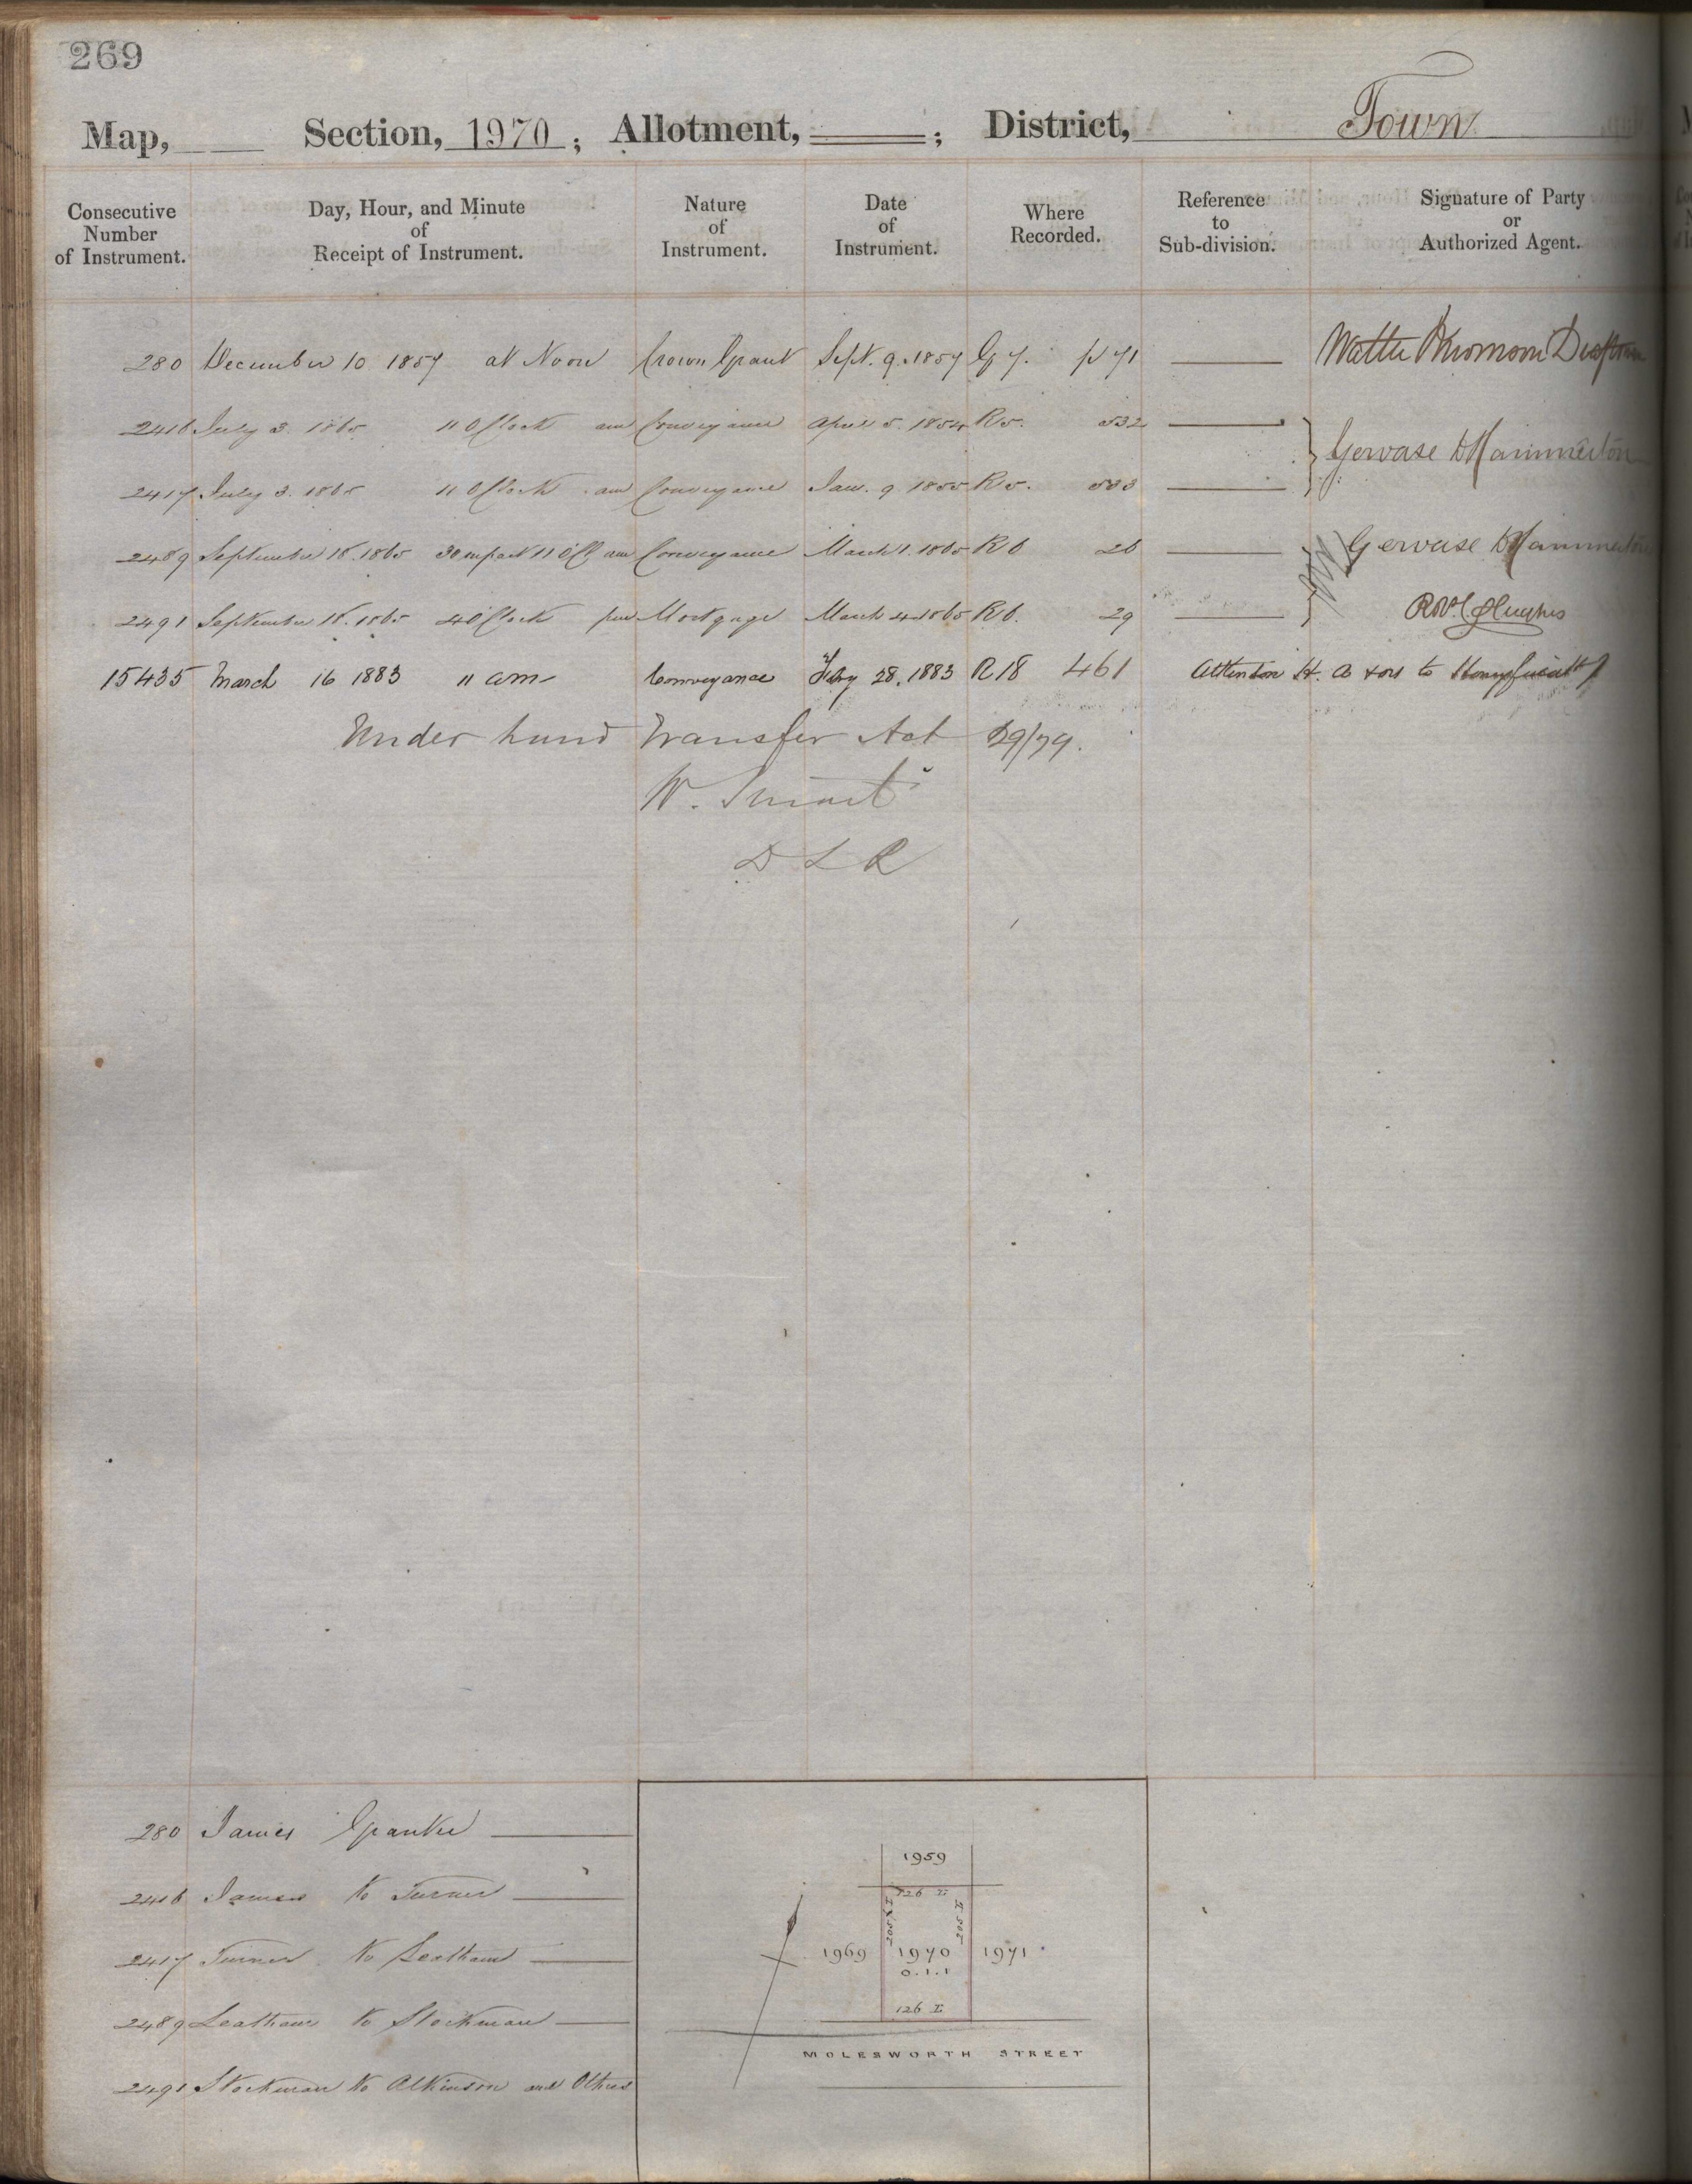 269
Map, Section, 1970; Allotment, ; District, Town
Consecutive Number of Instrument.
Day, Hour, and Minute of Receipt of Instrument.
Nature of Instrument.
Date of Instrument.
Where Recorded.
Reference to Sub-division.
Signature of Party or Authorized Agent.
280 December 10 1857 at Noon Crown Grant Sept. 9. 1857 G 7. p 71
2416 July 3. 1865 11 O'Clock am Conveyance April 5. 1854 R 5. 532
Gervase D Hammerton
2417 July 3. 1865 11 O'Clock am Conveyance Jan. 9 1855 R 5. 533
2489 September 18. 1865 30 m past 11 O'Cl am Conveyance March 1. 1865 R 6 26 Gervase D Hammerton
2491 September 18. 1865 4 O'Clock pm Mortgage March 4 1865 R 6. 29 Hughes
15435 March 16 1883 11 am Conveyance Feby 28. 1883 R 18 461 to
Under Land Transfer Act 29/79.
W. Stuart
D L R
280 James Grantee
2416 James to Turner
2417 Turner to Leatham
2489 Leatham to Stockman
2491 Stockman to Atkinson and Others
1959
126 L
805 L
805 L
1969 1970 1971
0.1.1
126 L
MOLESWORTH STREET